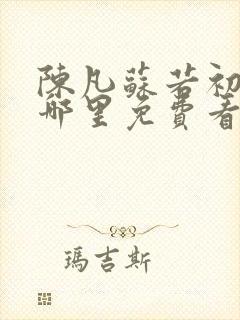 陳凡蘇若初
哪里免費看
瑪吉斯